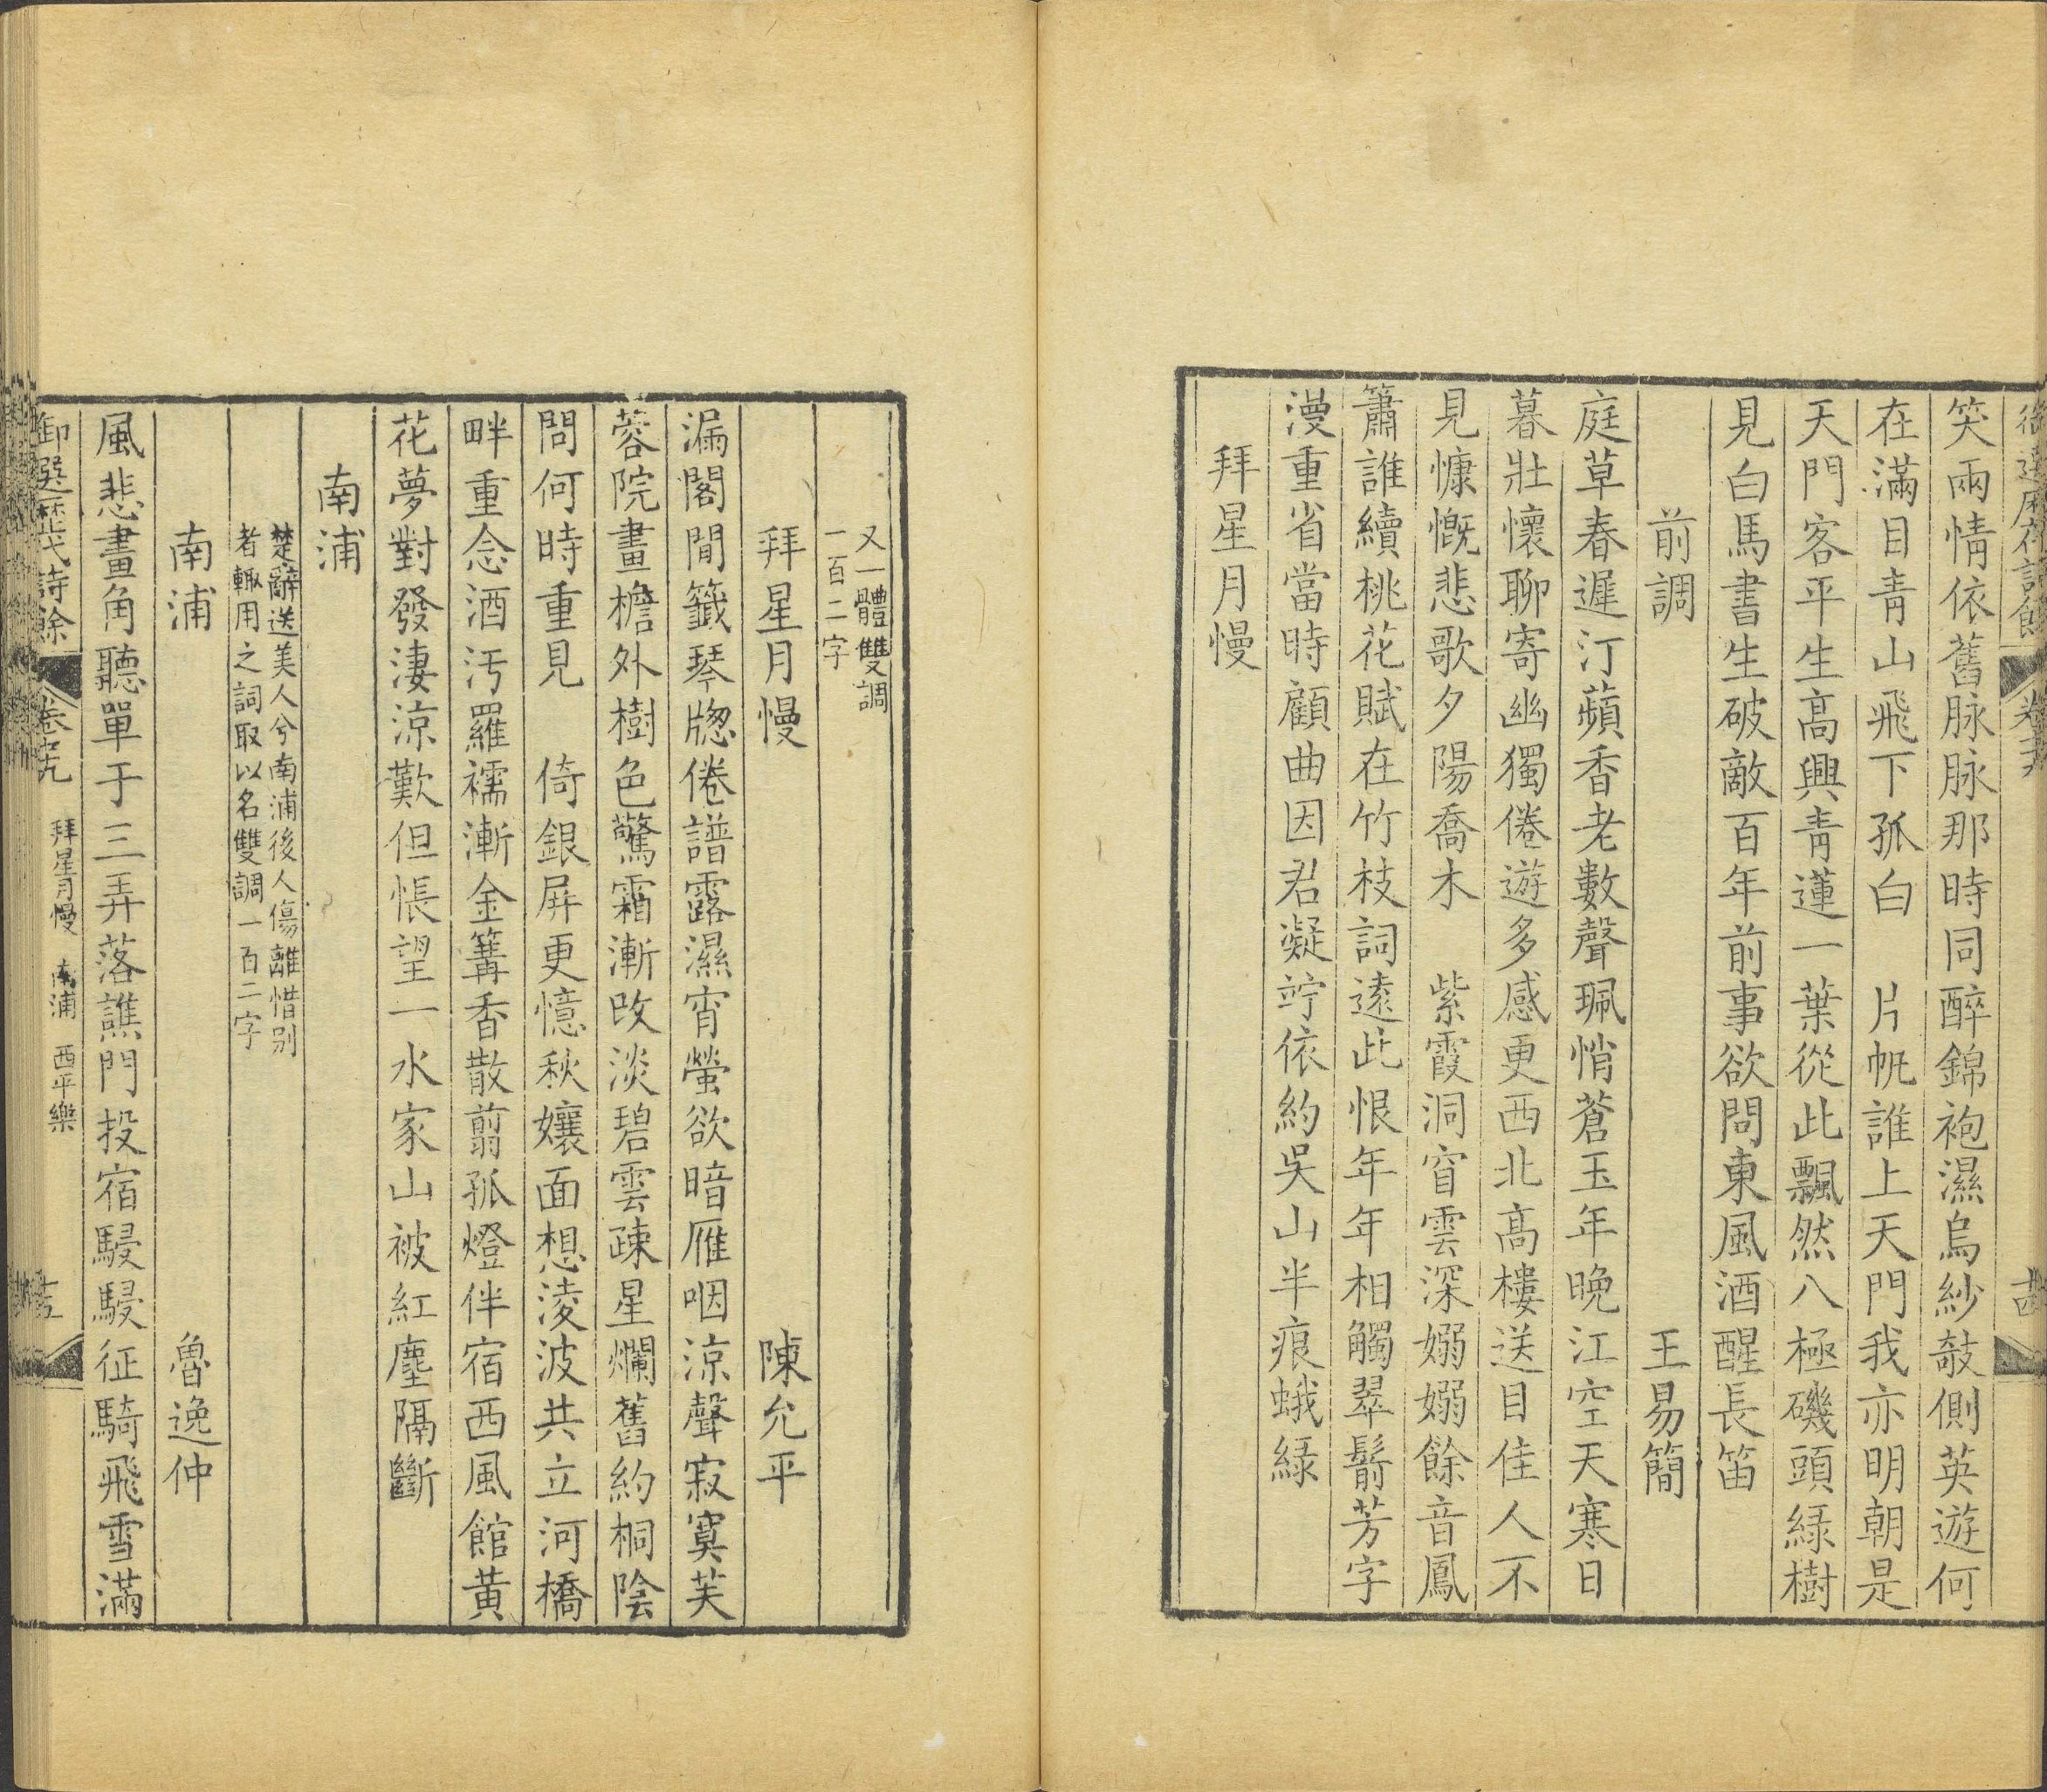 御選歷代詩餘 卷七十九 十四
笑兩情依舊脉脉那時同醉錦袍濕烏紗攲側英遊何
在滿目青山飛下孤白 片帆誰上天門我亦明朝是
天門客平生高興青蓮一葉從此飄然八極磯頭綠樹
見白馬書生破敵百年前事欲問東風酒醒長笛
前調 王易簡
庭草春遲汀蘋香老數聲珮悄蒼玉年晚江空天寒日
暮壯懷聊寄幽獨倦遊多感更西北高樓送目佳人不
見慷慨悲歌夕陽喬木 紫霞洞窅雲深嫋嫋餘音鳳
簫誰續桃花賦在竹枝詞遠此恨年年相觸翠鬋芳字
漫重省當時顧曲因君凝竚依約吳山半痕蛾綠
拜星月慢
又一體雙調
一百二字
拜星月慢 陳允平
漏閣閒籤琴牕倦譜露濕宵螢欲暗雁咽涼聲寂寞芙
蓉院畫檐外樹色驚霜漸改淡碧雲疎星爛舊約桐陰
問何時重見 倚銀屏更憶秋孃面想淩波共立河橋
畔重念酒汚羅襦漸金篝香散翦孤燈伴宿西風館黃
花夢對發淒涼歎但悵望一水家山被紅塵隔斷
南浦
楚辭送美人兮南浦後人傷離惜别
者輙用之詞取以名雙調一百二字
南浦 魯逸仲
風悲畫角聽單于三弄落譙門投宿駸駸征騎飛雪滿
御選歷代詩餘 卷七十九 拜星月慢 南浦 西平樂 十五